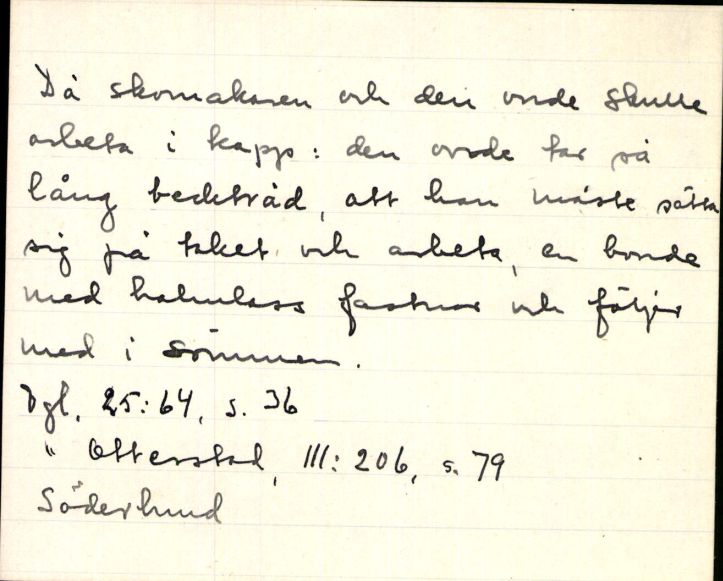 Då skomakaren och den onde skulle
arbeta i kapp: den onde tar så
lång becktråd, att han måste sätta
sig på taket och arbeta, en bonde
med halmlass fastnar och följer
med i sömmen.
Vgl, 25:64, s. 36
" Otterstad, III: 206, s. 79
Söderlund